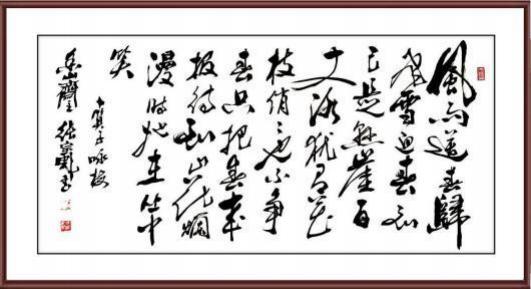 風雨送春歸
飛雪迎春到
已是懸崖百
丈冰猶有花
枝俏々也不爭
春只把春來
報待到山花爛
漫時她在丛中
笑
卜算子咏梅